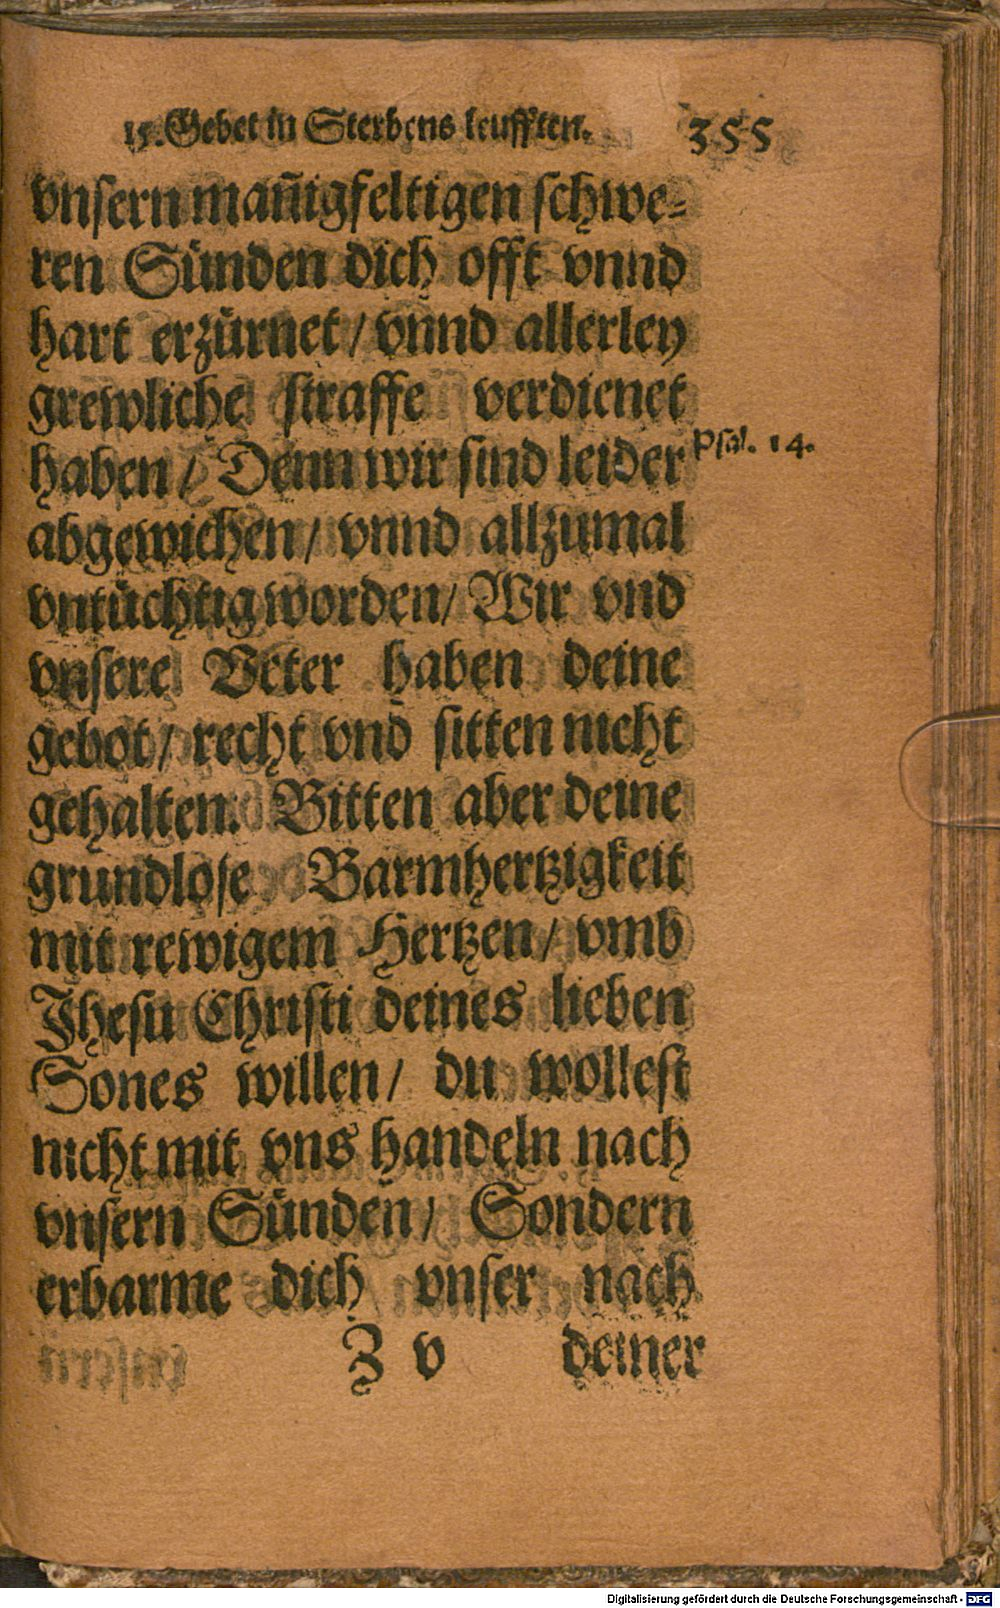 15. Gebet in Sterbens leufften. 355
vnsern mañigfeltigen schwe-
ren Sünden dich offt vnnd
hart erzürnet / vnnd allerley
grewliche straffe verdienet
haben / Denn wir sind leider
Psal. 14.
abgewichen / vnnd allzumal
vntüchtig worden / Wir vnd
vnsere Veter haben deine
gebot / recht vnd sitten nicht
gehalten. Bitten aber deine
grundlose Barmhertzigkeit
mit rewigem Hertzen / vmb
Jhesu Christi deines lieben
Sones willen / du wollest
nicht mit vns handeln nach
vnsern Sünden / Sondern
erbarme dich vnser nach
Z v deiner
Digitalisierung gefördert durch die Deutsche Forschungsgemeinschaft - DFG